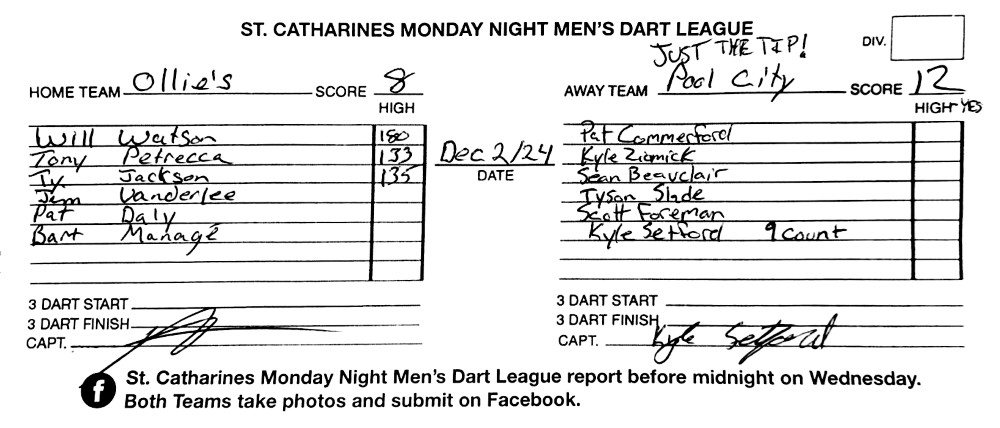 ST. CATHARINES MONDAY NIGHT MEN'S DART LEAGUE
JUST THE TIP!
DIV.
HOME TEAM Ollie's SCORE 8
AWAY TEAM Pool City SCORE 12
HIGH
HIGH YES
Will Watson 180
Tony Petrecca 133
Ty Jackson 135
Jim Vanderlee
Pat Daly
Bart Managé
Dec 2/24
DATE
Pat Commerford
Kyle Zizmick
Sean Beauclair
Tyson Slade
Scott Foreman
Kyle Setford 9 count
3 DART START
3 DART FINISH
CAPT.
3 DART START
3 DART FINISH
CAPT. Kyle Setford
f St. Catharines Monday Night Men's Dart League report before midnight on Wednesday.
Both Teams take photos and submit on Facebook.